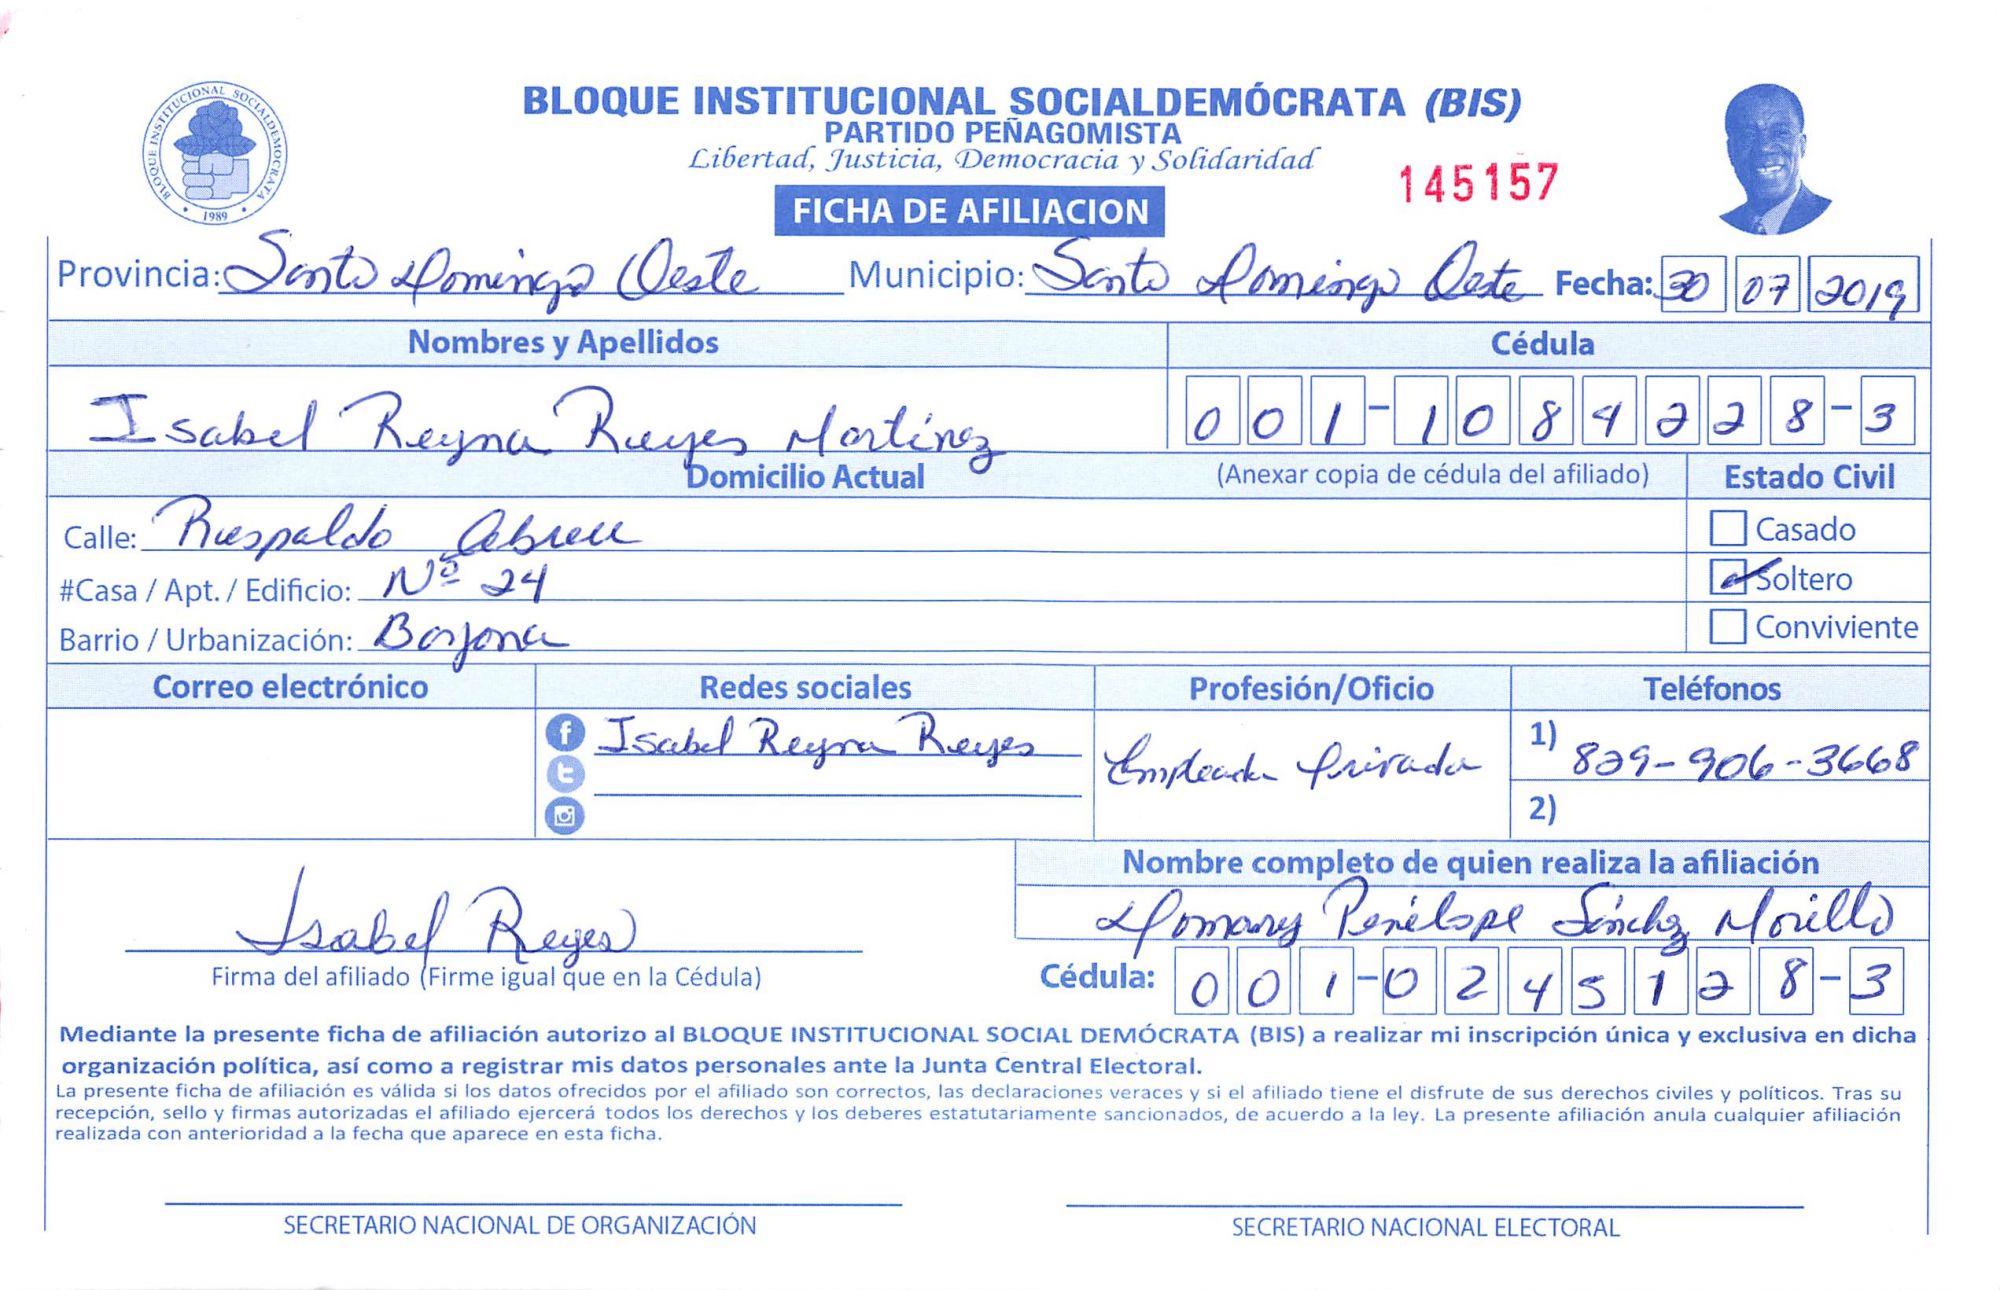 BLOQUE INSTITUCIONAL SOCIALDEMOCRATA
1989
BLOQUE INSTITUCIONAL SOCIALDEMÓCRATA (BIS)
PARTIDO PEÑAGOMISTA
Libertad, Justicia, Democracia y Solidaridad
145157
FICHA DE AFILIACION
Provincia: Santo Domingo Oeste Municipio: Santo Domingo Oeste Fecha: 30 07 2019
Nombres y Apellidos Cédula
Isabel Reyna Reyes Martínez 001-1084228-3
Domicilio Actual (Anexar copia de cédula del afiliado) Estado Civil
Calle: Respaldo Abreu Casado
#Casa / Apt. / Edificio: Nº 24 Soltero
Barrio / Urbanización: Bayona Conviviente
Correo electrónico Redes sociales Profesión/Oficio Teléfonos
Isabel Reyna Reyes Empleada Privada 1) 829-906-3668
2)
Nombre completo de quien realiza la afiliación
Isabel Reyes Penélope Sánchez Morillo
Firma del afiliado (Firme igual que en la Cédula) Cédula: 001-0245128-3
Mediante la presente ficha de afiliación autorizo al BLOQUE INSTITUCIONAL SOCIAL DEMÓCRATA (BIS) a realizar mi inscripción única y exclusiva en dicha
organización política, así como a registrar mis datos personales ante la Junta Central Electoral.
La presente ficha de afiliación es válida si los datos ofrecidos por el afiliado son correctos, las declaraciones veraces y si el afiliado tiene el disfrute de sus derechos civiles y políticos. Tras su
recepción, sello y firmas autorizadas el afiliado ejercerá todos los derechos y los deberes estatutariamente sancionados, de acuerdo a la ley. La presente afiliación anula cualquier afiliación
realizada con anterioridad a la fecha que aparece en esta ficha.
SECRETARIO NACIONAL DE ORGANIZACIÓN SECRETARIO NACIONAL ELECTORAL